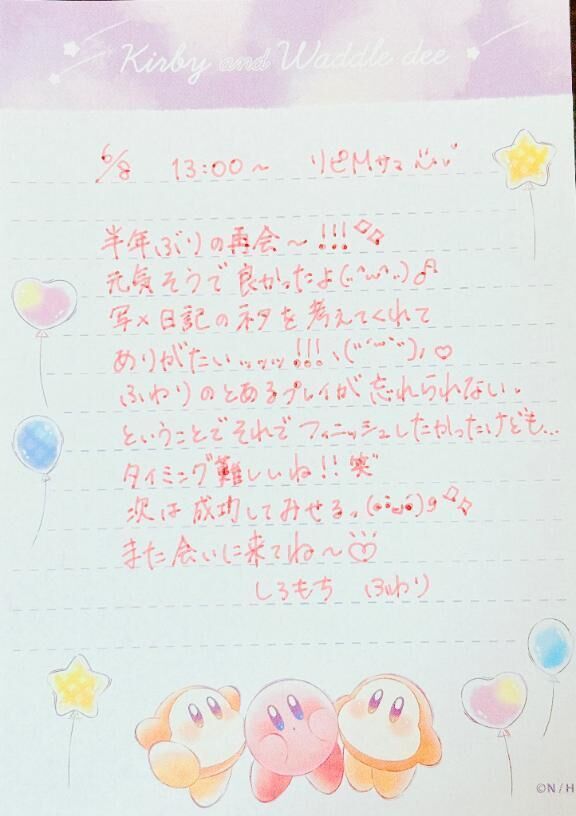 Kirby and Waddle dee
6/8 13:00～ リピMサマ
半年ぶりの再会～!!!
元気そうで良かったよ(¨^ω^¨)♂
写メ日記のネタを考えてくれて
ありがたいッッッ!!!ヽ(¨´ω`¨)ﾉ♡
ふわりのとあるプレイが忘れられない、
ということでそれでフィニッシュしたかったけども…
タイミング難しいね!!笑
次は成功してみせるっ(•̀ω•́)و
また会いに来てね～♡
しろもち ふわり
©N/H